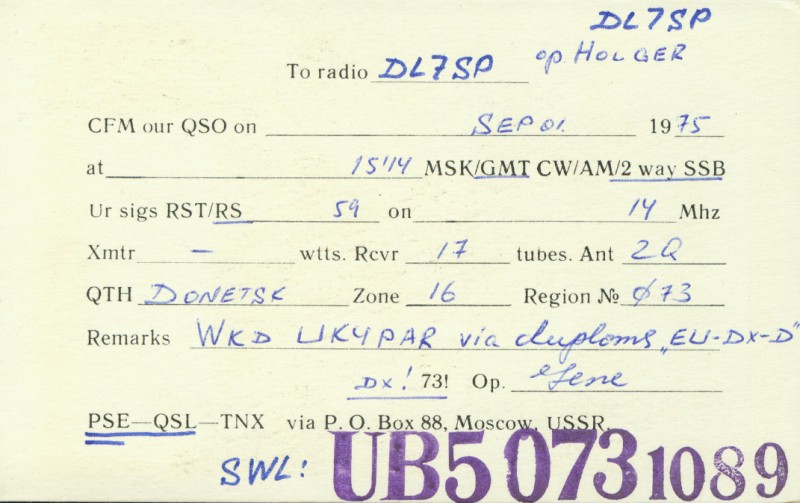 DL7SP
To radio DL7SP op. HOLGER
CFM our QSO on SEP 01. 1975
at 15'14 MSK/GMT CW/AM/2 way SSB
Ur sigs RST/RS 59 on 14 Mhz
Xmtr — wtts. Rcvr 17 tubes. Ant 2Q
QTH DONETSK Zone 16 Region № Ø73
Remarks WKD UK4PAR via duploms „EU-DX-D"
DX! 73! Op. Gene
PSE—QSL—TNX via P. O. Box 88, Moscow, USSR.
SWL: UB5 073 1089